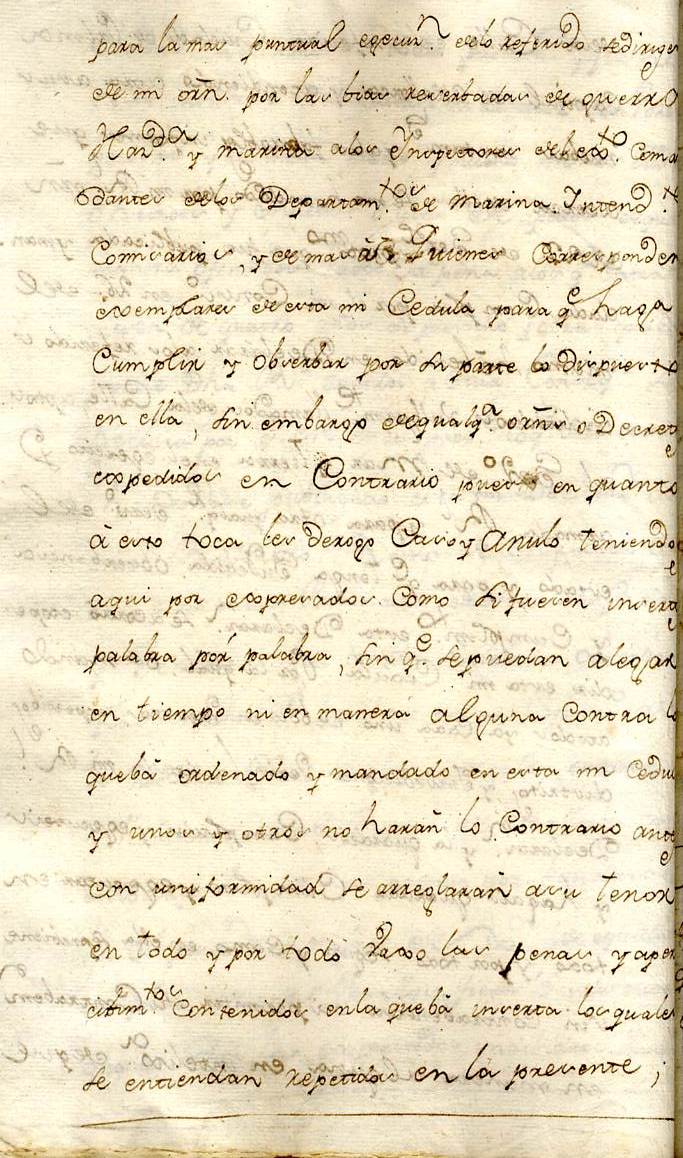 para la mas puntual egecun. delo referido sedirige
de mi orñ. por las bias reserbadas de guerra
Hazda. y marina alos Ynspectores del exto. Coman
dantes delos Departamtos. de Marina. Intend.tes
Comisarios, y demas â Quienes Corresponden
exemplares de esta mi Cedula para qe. haga
Cumplir y Obserbar por su parte lo Dispuesto
en ella, sin embargo de qualqa. orñs o Decreto
expedidos en Contrario pues en quanto
â esto toca les Derogo Caso y Anulo teniendo
aqui por expresados. Como si fuesen inserta
palabra por palabra, sin qe. se puedan alegar
en tiempo ni en manera alguna Contra lo
quebâ ordenado y mandado en esta mi Cedu
y unos y otros no harañ lo Contrario ante
con uniformidad se arreglarañ asu tenor
en todo y por todo vaxo las penas y aper
cibimtos Contenidos en la quebâ inserta los quales
se entiendan repetidas en la presente;